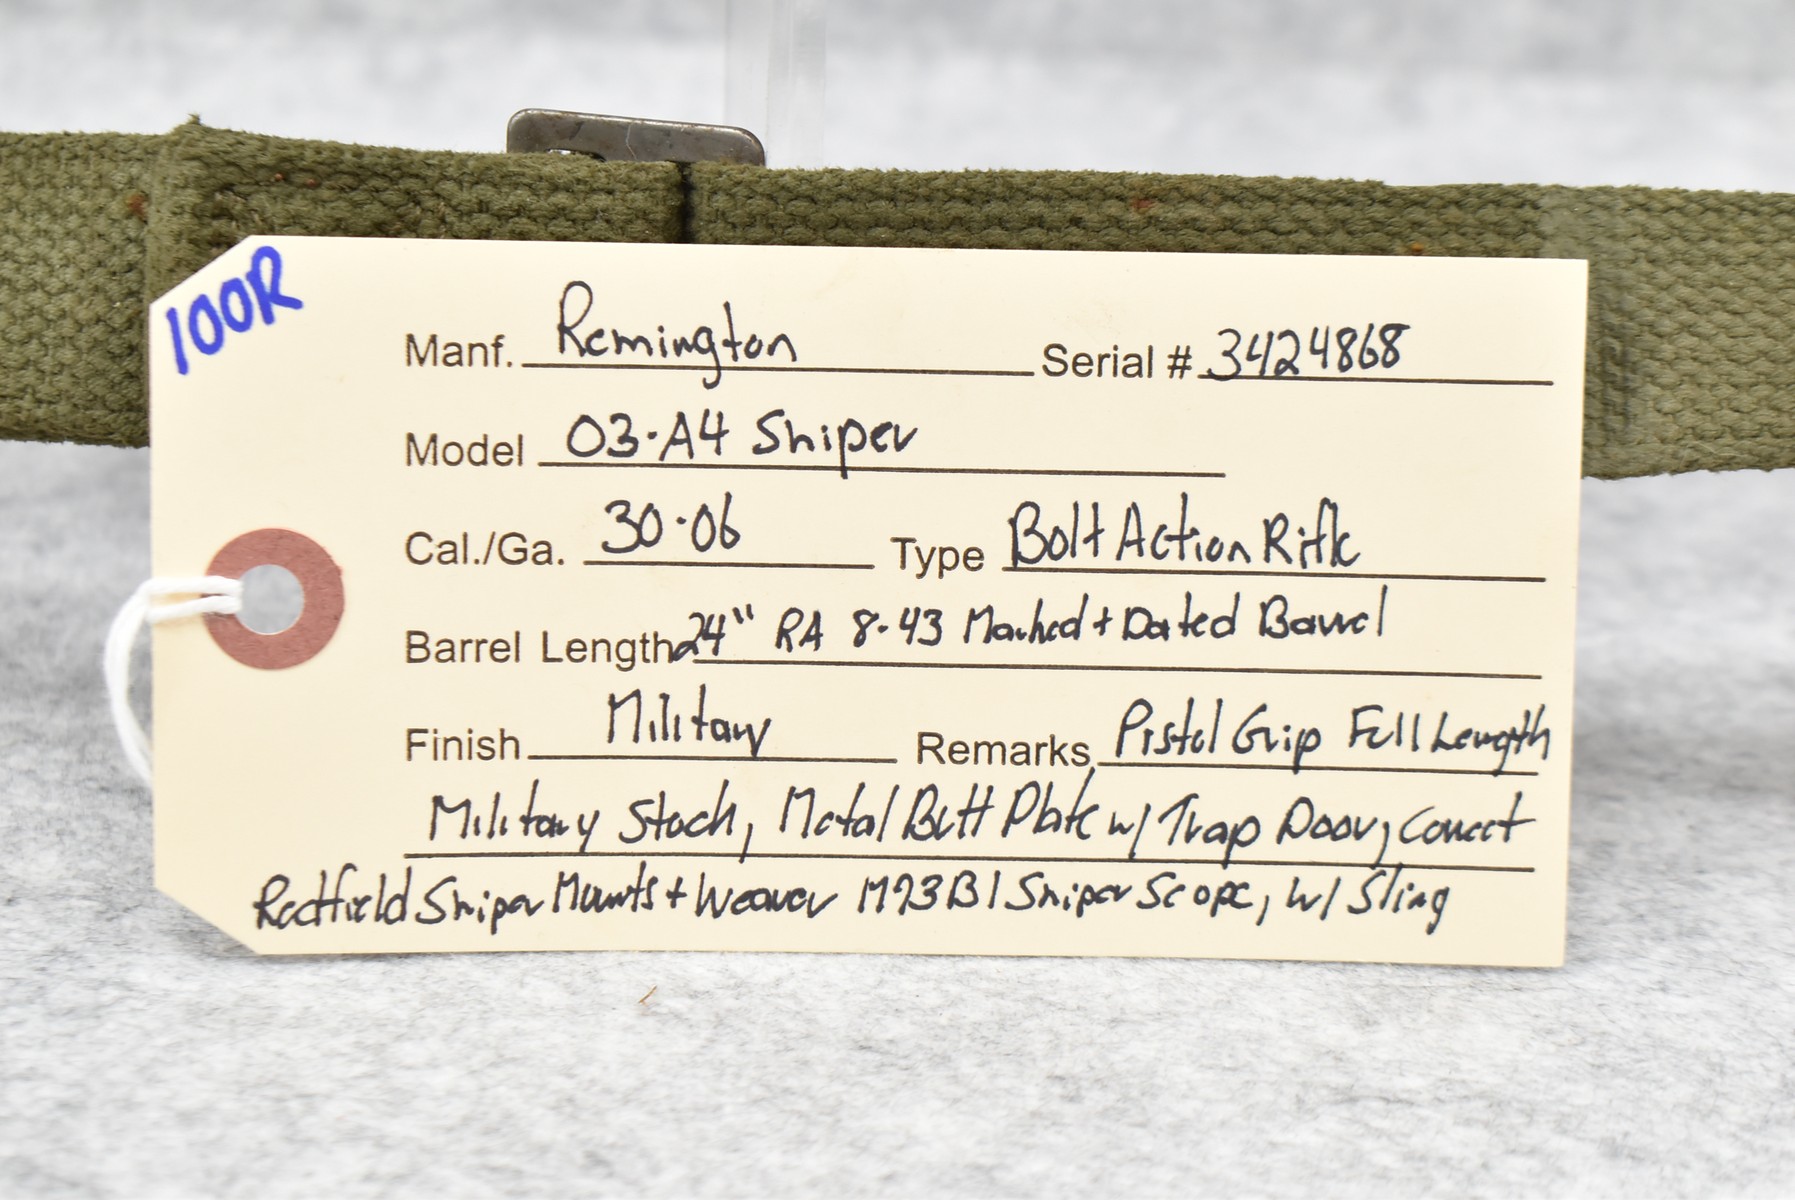 100R
Manf. Remington Serial # 3424868
Model 03-A4 Sniper
Cal./Ga. 30-06 Type Bolt Action Rifle
Barrel Length 24" RA 8-43 Marked + Dated Barrel
Finish Military Remarks Pistol Grip Full Length
Military Stock, Metal Butt Plate w/ Trap Door, Correct
Redfield Sniper Mounts + Weaver M73B1 Sniper Scope, w/ Sling